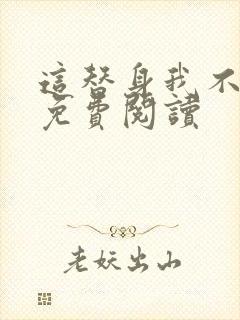 這替身我不
免費閱讀
老妖出山